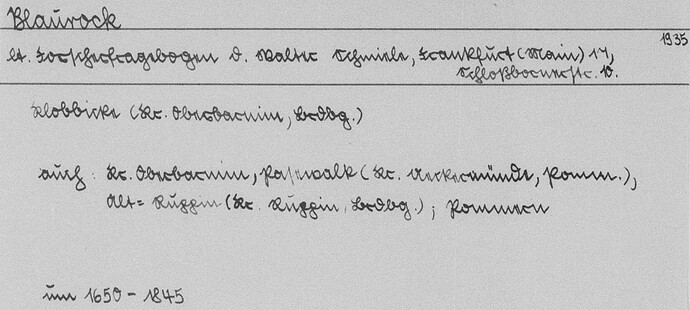 Blaurock
1935
lt. Forscherfragebogen v. Walter Schmiele, Frankfurt (Main) 17,
Schloßbornerstr. 10.
Klobbicke (Kr. Oberbarnim, Brdbg.)
auch: Kr. Oberbarnim, Pasewalk (Kr. Ueckermünde, Pomm.),
Alt-Ruppin (Kr. Ruppin, Brdbg.); Pommern
um 1650 - 1845